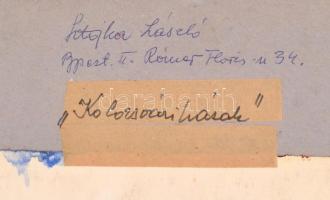 Sztojka László
Bpest. II. Rómer Flóris u 34.
"Kolozsvári házak"